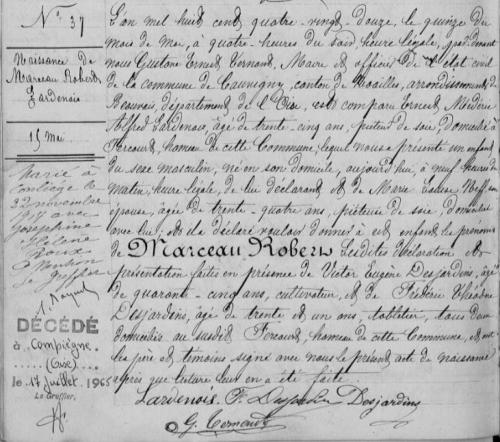 N° 37
Naissance de
Marceau Robert
Lardenois
15 Mai
Marié à
le
22 novembre
1917 avec
Joséphine
Hélène
DÉCÉDÉ
à Compiègne
(Oise)
le 17 juillet 1965
Le Greffier,
L'an mil huit cent quatre-vingt-douze, le quinze du
mois de Mai, à quatre heures du soir, heure légale, par devant
nous Gustave Ernest Ternaux, Maire et officier de l'état civil
de la commune de Cauvigny, canton de Noailles, arrondissement de
Beauvais, département de l'Oise, est comparu Ernest Médéric
Alfred Lardenois, âgé de trente-cinq ans, domicilié à
Fercourt, hameau de cette Commune, lequel nous a présenté un enfant
du sexe masculin, né en son domicile, aujourd'hui, à neuf heures du
matin, heure légale, de lui déclarant et de Marie Louise
épouse, âgée de trente-quatre ans, domiciliée
avec lui, et il a déclaré vouloir donner à cet enfant les prénoms
de Marceau Robert. Lesdites déclaration et
présentation faites en présence de Victor Eugène Desjardins, âgé
de quarante-cinq ans, cultivateur, et de Frédéric Théodore
Desjardins, âgé de trente et un ans, tabletier, tous deux
domiciliés au susdit Fercourt, hameau de cette Commune, et ont
les père et témoins signé avec nous le présent acte de naissance
après que lecture leur en a été faite.
Lardenois F. Desjardins Desjardins
G. Ternaux